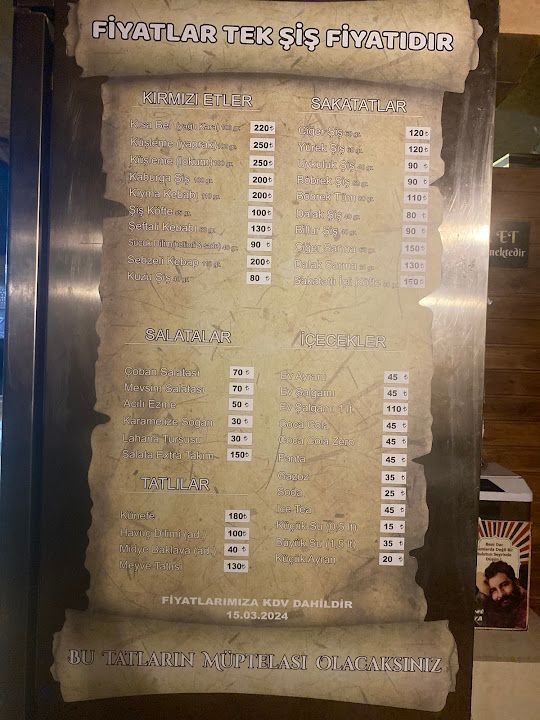 FİYATLAR TEK ŞİŞ FİYATIDIR
KIRMIZI ETLER
Kısa Bel (yağlı Kara) 100 gr. 220₺
Küşleme (yaprak) 100 gr. 250₺
Küşleme (lokum) 100 gr. 250₺
Kaburga Şiş 100 gr. 200₺
Kıyma Kebabı 110 gr. 200₺
Şiş Köfte gr. 100₺
Şeftali Kebabı gr. 130₺
gr. 90 ₺
Sebzeli Kebap gr. 200₺
Kuzu Şiş gr. 80 ₺
SAKATATLAR
Ciğer Şiş gr. 120₺
Yürek Şiş gr. 120₺
Uykuluk Şiş gr. 90 ₺
Böbrek Şiş gr. 90 ₺
Böbrek Tüm gr. 110₺
Dalak Şiş gr. 80 ₺
Billur Şiş gr. 90 ₺
Ciğer Sarma gr. 150₺
Dalak Sarma gr. 130₺
Sakatatlı İçli Köfte gr. 150₺
SALATALAR
Çoban Salatası 70 ₺
Mevsim Salatası 70 ₺
Acılı Ezme 50 ₺
Karamelize Soğan 30 ₺
Lahana Turşusu 30 ₺
Salata Extra Takım 150₺
TATLILAR
Künefe 180₺
Havuç Dilimi (ad.) 100₺
Midye Baklava (ad.) 40 ₺
Meyve Tatlısı 130₺
İÇECEKLER
Ev Ayranı 45 ₺
Ev Şalgamı 45 ₺
Ev Şalgamı 1 lt. 110₺
Coca Cola 45 ₺
Coca Cola Zero 45 ₺
Fanta 45 ₺
Gazoz 35 ₺
Soda 25 ₺
Ice Tea 45 ₺
Küçük Su (0,5 lt) 15 ₺
Büyük Su (1,5 lt) 35 ₺
Küçük Ayran 20 ₺
FİYATLARIMIZA KDV DAHİLDİR
15.03.2024
BU TATLARIN MÜPTELASI OLACAKSINIZ
ET